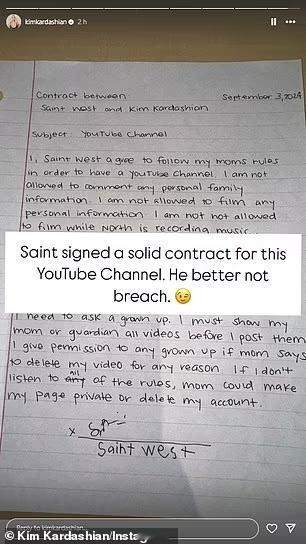 kimkardashian 2h
Contract between
September 3, 2024
Saint West and Kim Kardashian
Subject: YouTube Channel
I, Saint West agree to follow my moms rules
in order to have a YouTube Channel. I am not
allowed to comment any personal family
information. I am not allowed to film any
personal information I am not not allowed
to film while North is recording music.
Saint signed a solid contract for this
YouTube Channel. He better not
breach. 😉
I need to ask a grown up. I must show my
mom or guardian all videos before I post them
I give permission to any grown up if mom says
to delete my video for any reason If I don't
listen to all of the rules, mom could make
my page private or delete my account.
x
Saint west
Reply to kimkardashian...
© Kim Kardashian/Insta